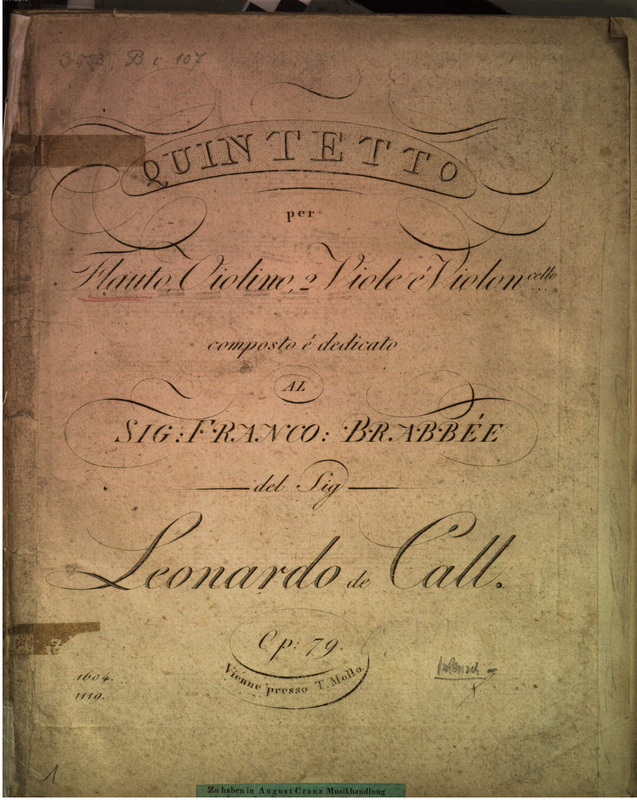 B c. 107
QUINTETTO
per
Flauto, Violino, 2 Viole é Violoncello
composto é dedicato
AL
SIG: FRANCO: BRABBÉE
del Sig
Leonardo de Call.
Op: 79.
Vienne presso T. Mollo.
1604.
1110.
1
Zu haben in August Cranz Musikhandlung